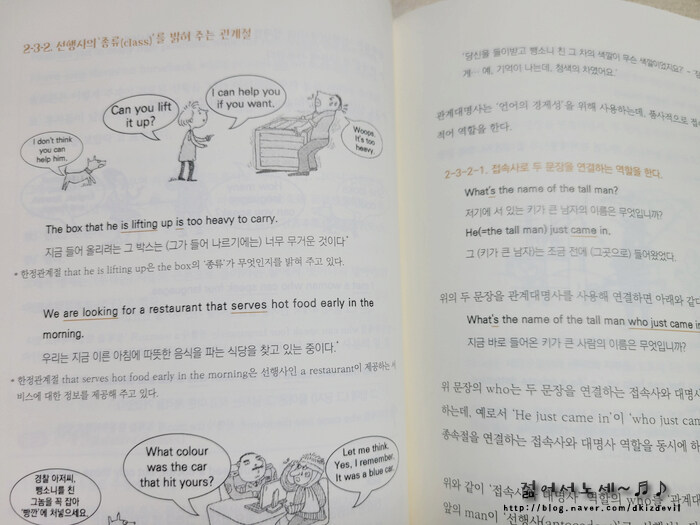 2-3-2. 선행사의 '종류(class)'를 밝혀 주는 관계절
I can help you
if you want.
Can you lift
it up?
Woops.
It's too
heavy.
I don't think
you can
help him.
The box that he is lifting up is too heavy to carry.
지금 들어 올리려는 그 박스는 (그가 들어 나르기에는) 너무 무거운 것이다"
* 한정관계절 that he is lifting up은 the box의 '종류'가 무엇인지를 밝혀 주고 있다.
We are looking for a restaurant that serves hot food early in the
morning.
우리는 지금 이른 아침에 따뜻한 음식을 파는 식당을 찾고 있는 중이다."
* 한정관계절 that serves hot food early in the morning은 선행사인 a restaurant이 제공하는 서
비스에 대한 정보를 제공해 주고 있다.
What colour
was the car
that hit yours?
Let me think.
Yes, I remember.
It was a blue car.
경찰 아저씨,
뺑소니를 친
그놈을 꼭 잡아
"깜깐"에 처넣으세요.
'당신을 들이받고 뺑소니 친 그 차의 색깔이 무슨 색깔이었지요?' -
게… 예, 기억이 나는데, 청색의 차였어요.'
관계대명사는 '언어의 경제성'을 위해 사용하는데, 통사적으로 접
적어 역할을 한다.
2-3-2-1. 접속사로 두 문장을 연결하는 역할을 한다.
What's the name of the tall man?
저기에 서 있는 키가 큰 남자의 이름은 무엇입니까?
He(=the tall man) just came in.
그 (키가 큰 남자)는 조금 전에 (그곳으로) 들어왔었다.
위의 두 문장을 관계대명사를 사용해 연결하면 아래와 같다
What's the name of the tall man who just came in
지금 바로 들어온 키가 큰 사람의 이름은 무엇입니까?
위 문장의 who는 두 문장을 연결하는 접속사와 대명사
하는데, 예로서 'He just came in'이 'who just cam
종속절을 연결하는 접속사와 대명사 역할을 동시에 하
위와 같이 '접속사 대명사 역할의 who'를 '관계대
앞의 man이 '선행사
젊어서노세~♬♪
http://blog.naver.com/dkizdevil